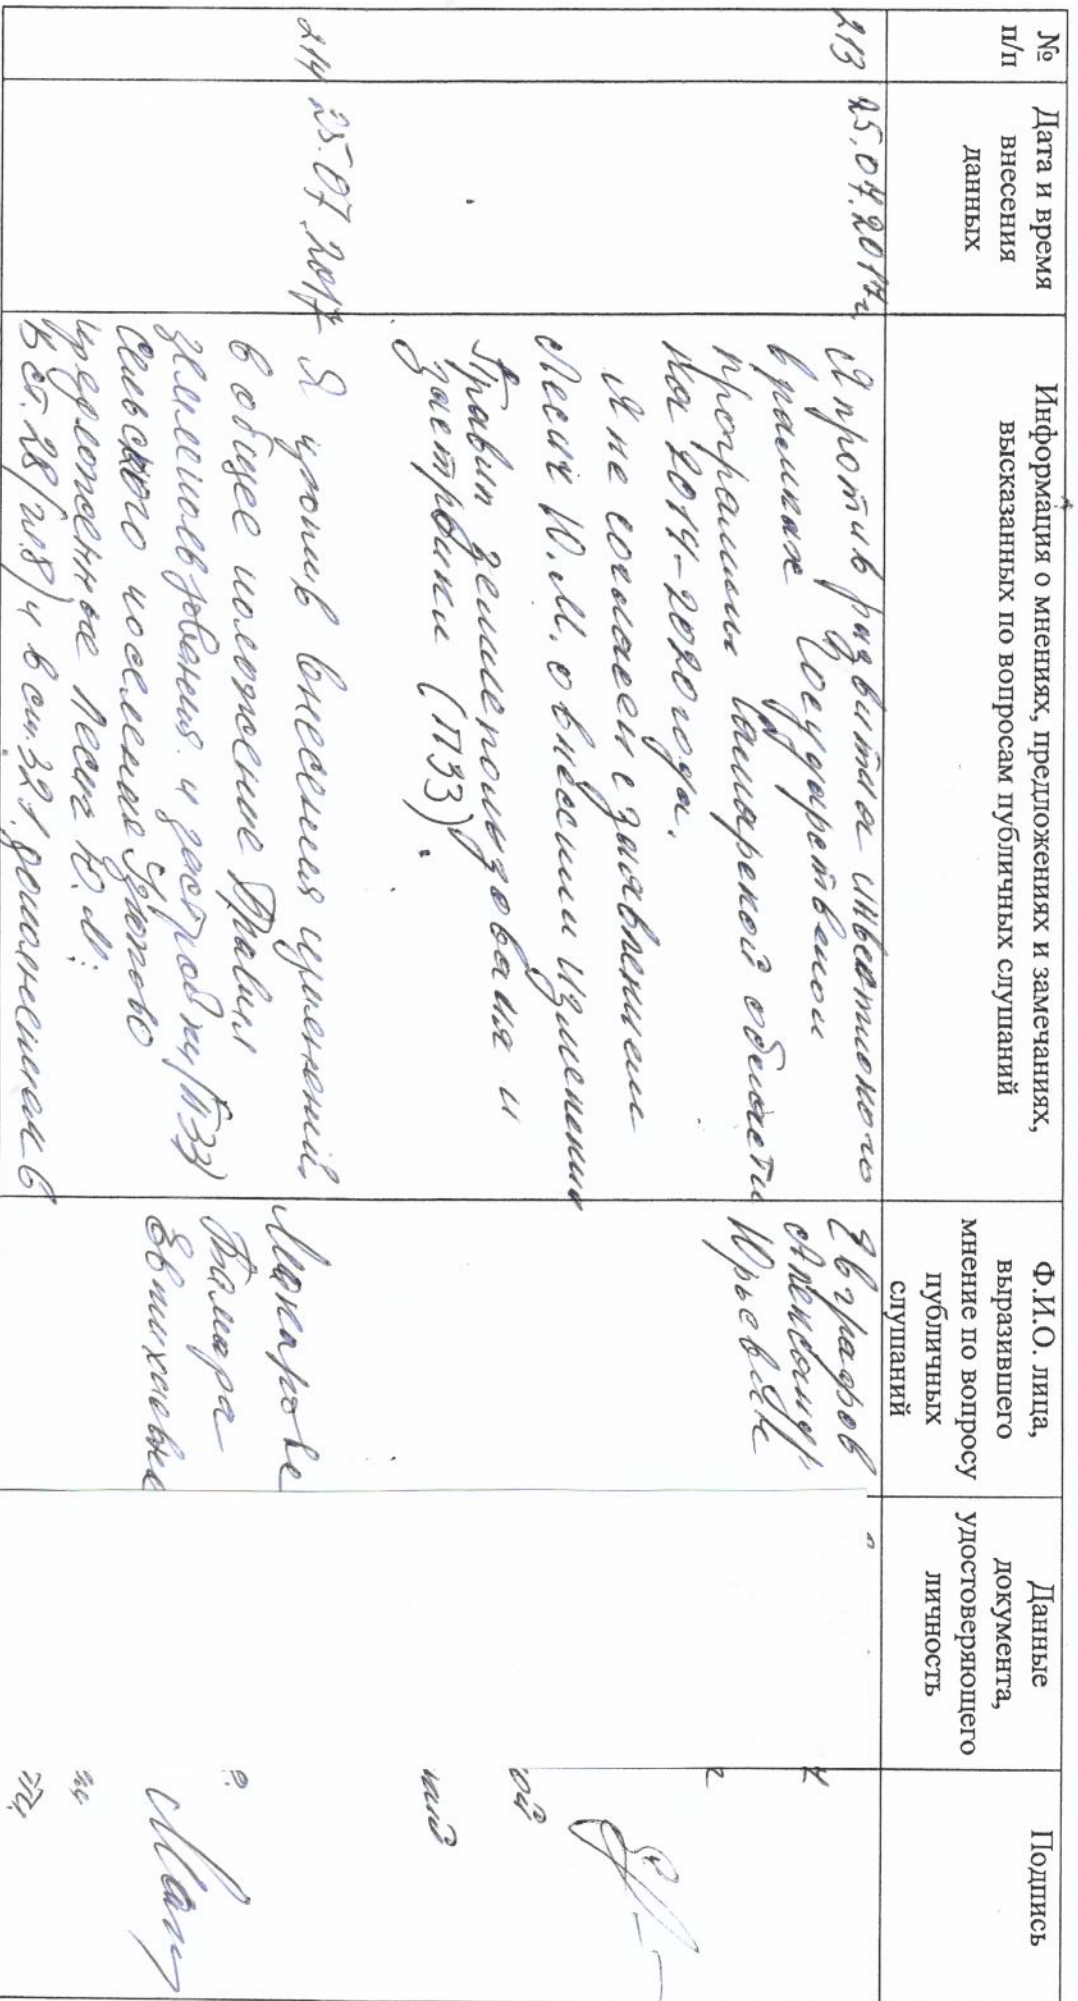 № п/п
Дата и время внесения данных
Информация о мнениях, предложениях и замечаниях, высказанных по вопросам публичных слушаний
Ф.И.О. лица, выразившего мнение по вопросу публичных слушаний
Данные документа, удостоверяющего личность
Подпись
213
25.07.2017г.
Я против развития инвестионого
в рамках Государственои
программы Самарской области
на 2014-2020 года.
Я не согласен с заявлением
Лесик Ю.М. о внесении изменении
Правил землепользования и
застройки (ПЗЗ).
Евграфов
Александр
Юрьевич
214
25.07.2017
Я против внесения изменений
в общее положение Правил
землепользования и застройки /ПЗЗ/
сельского поселения
предложенное Лесик Ю.М.:
в ст. 28 /п.8/ и в ст. 32 дополнением в
Макарова
Тамара